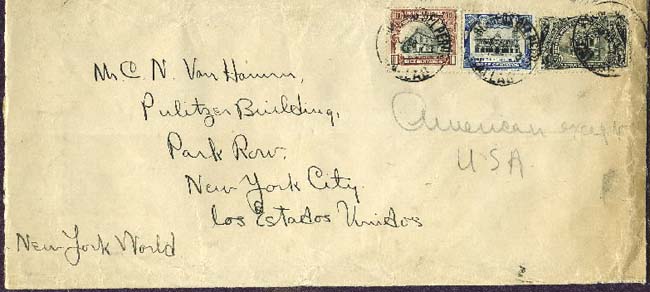 Mr C. N. Van Hamm,
Pulitzer Building,
Park Row.
New York City.
los Estados Unidos
New York World
American except
USA.